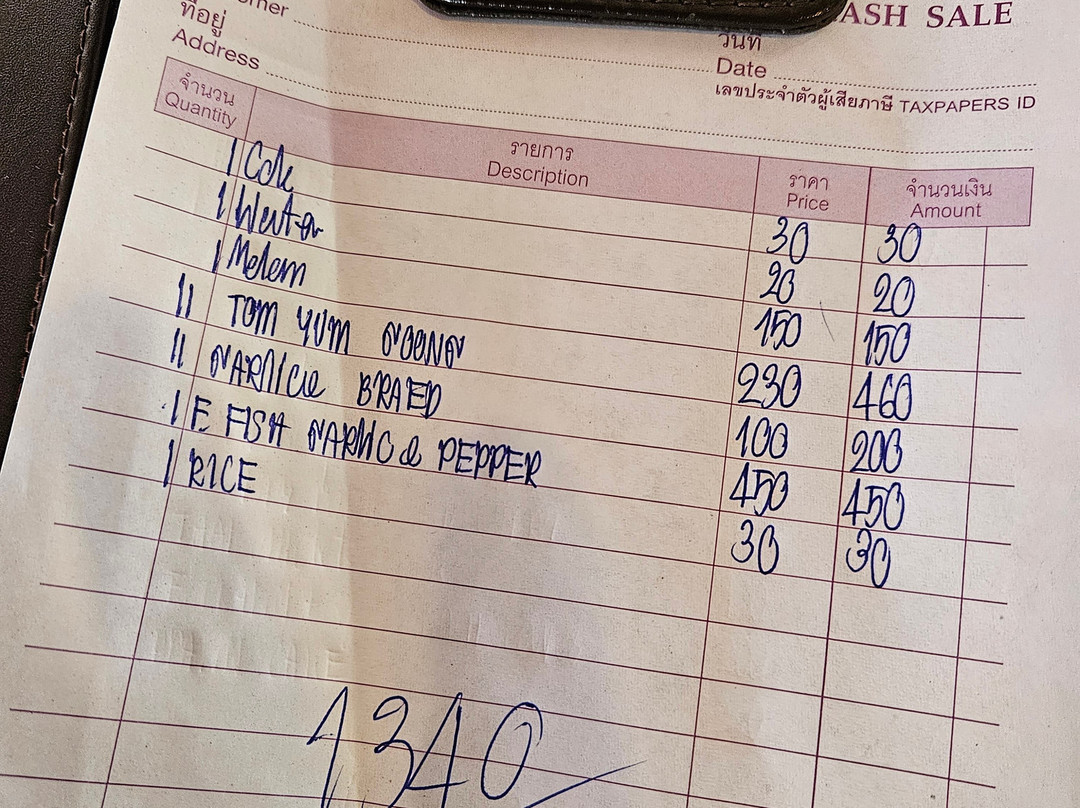 ASH SALE
omer
ที่อยู่
วันที่
Address
Date
เลขประจำตัวผู้เสียภาษี TAXPAPERS ID
จำนวน รายการ ราคา จำนวนเงิน
Quantity Description Price Amount
1 Cok 30 30
1 Water 20 20
1 Melem 150 150
11 TOM YUM GOONG 230 460
11 GARLICE BRAED 100 200
1 F FISH GARLIC & PEPPER 450 450
1 RICE 30 30
1,340